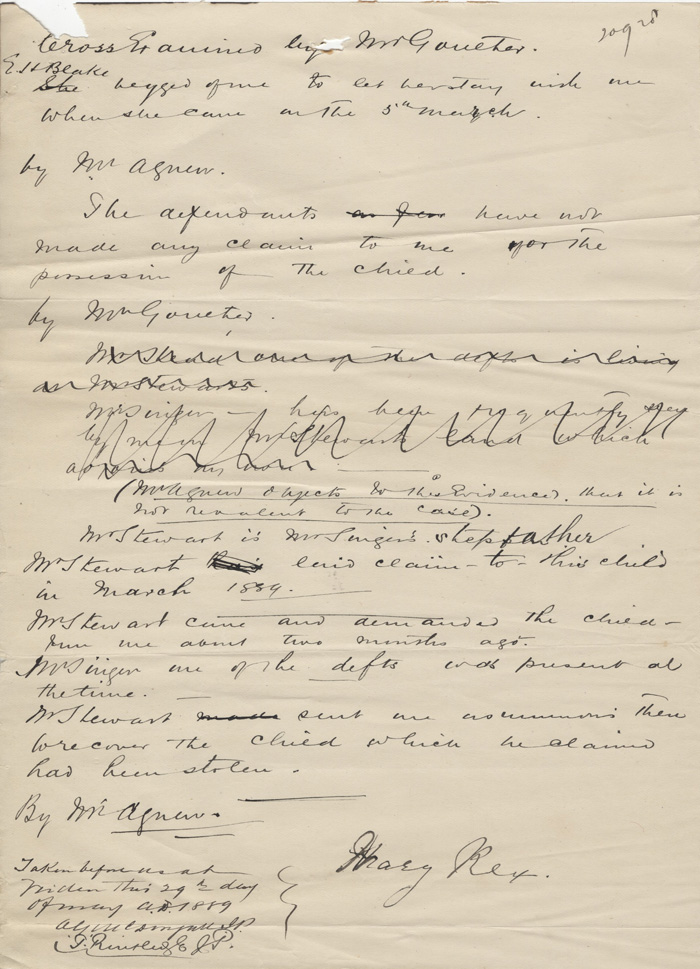 Cross Examined by Mr Goucher.
E H Blake
She begged of me to let her stay with me
When she came on the 5th march.
by Mr Agnew.
The defendants have not
made any claim to me for the
possession of the child.
by Mr Goucher.
one of the defts is living
Mr Stewarts.
Mr Singer — has been frequently
by me Mr Stewarts land which
adjoins my own
(Mr Agnew objects to this Evidence, that it is
not revalent to the case).
Mr Stewart is Mr Singer's stepfather
Mr Stewart has laid claim to this child
in March 1889.
Mr Stewart came and demanded the child
from me about two months ago.
Mr Singer one of the defts was present at
the time.
Mr Stewart made sent me a summons then
to recover the child which he claimed
had been stolen.
By Mr Agnew.
Taken before us at
this 29th day
of may A.D. 1889
J.P.
J.P.
Mary Rex.